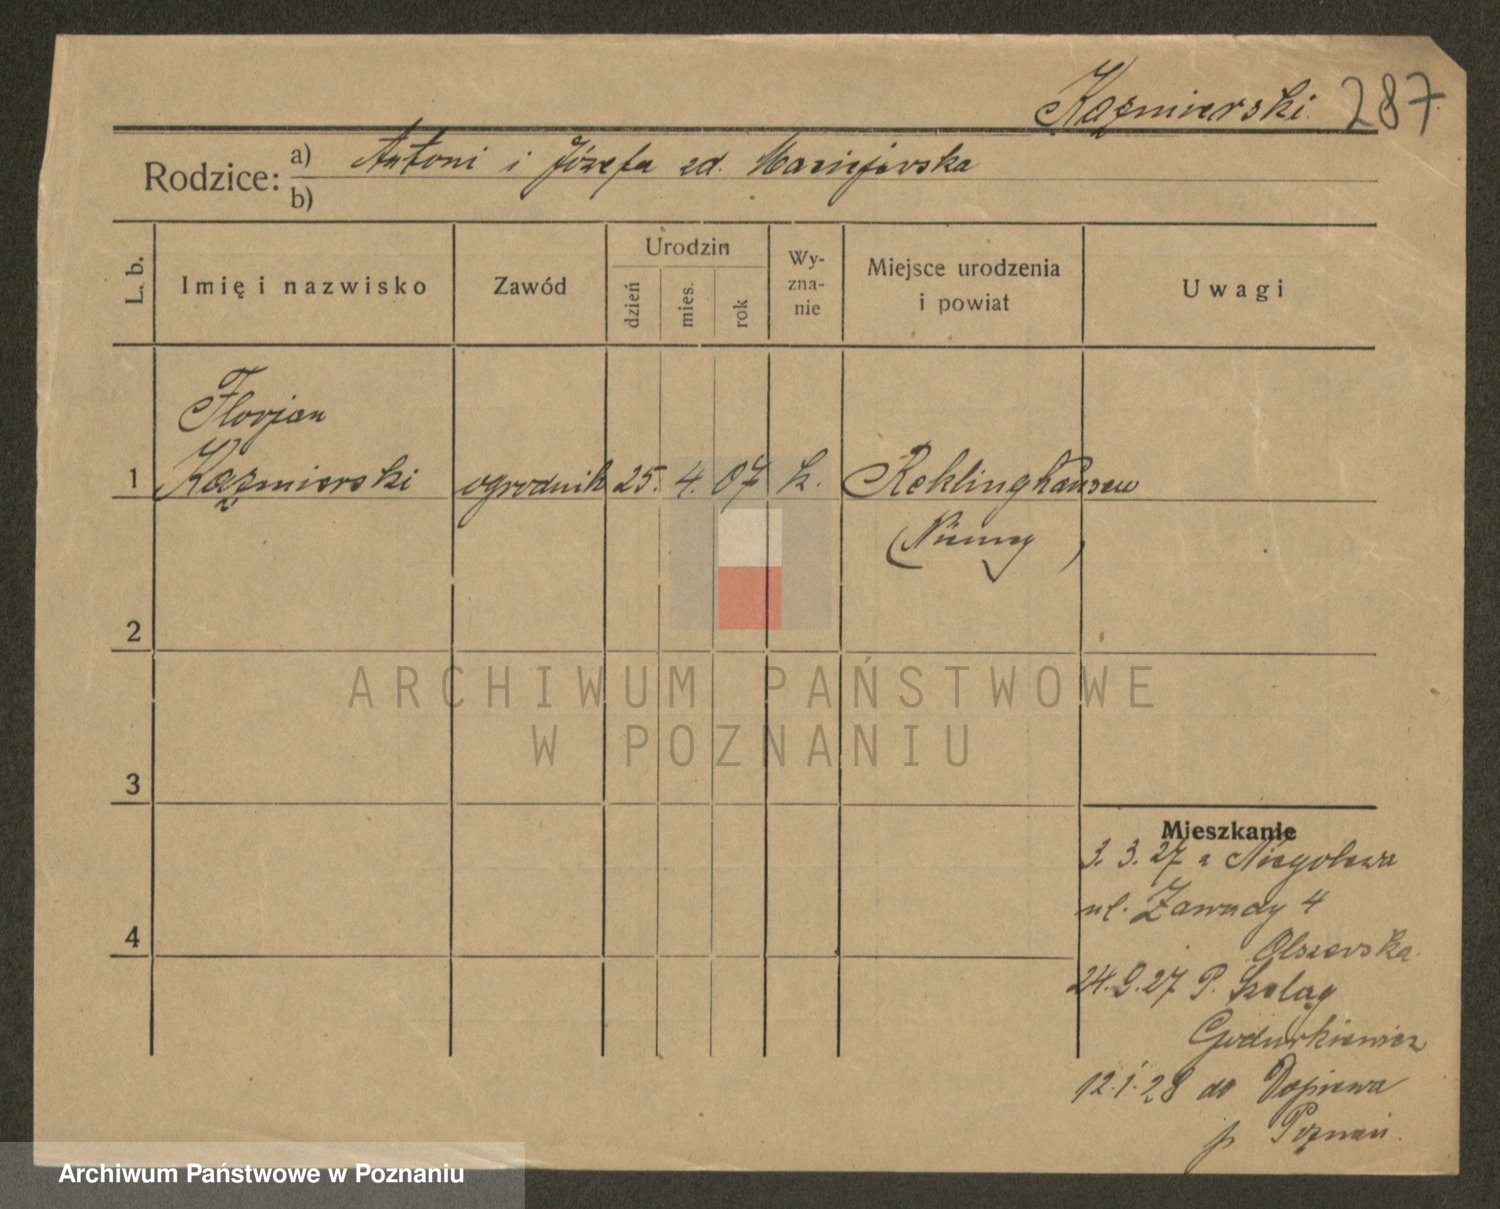 Kaźmierski 287
Rodzice: a) Antoni i Józefa zd. Maciejewska
b)
L. b. Imię i nazwisko Zawód Urodzin Wy-zna-nie Miejsce urodzenia i powiat Uwagi
dzień mies. rok
Florjan
1 Kaźmierski ogrodnik 25. 4. 07 k. Reklinghausen
(Niemcy)
2
ARCHIWUM PAŃSTWOWE
W POZNANIU
3
Mieszkanie
3. 3. 27 z Niegolewa
ul. Zawady 4
4
Olszewska.
24. 9. 27 P. Szeląg
12. 1. 28 do Dopiewa
p Poznań.
Archiwum Państwowe w Poznaniu